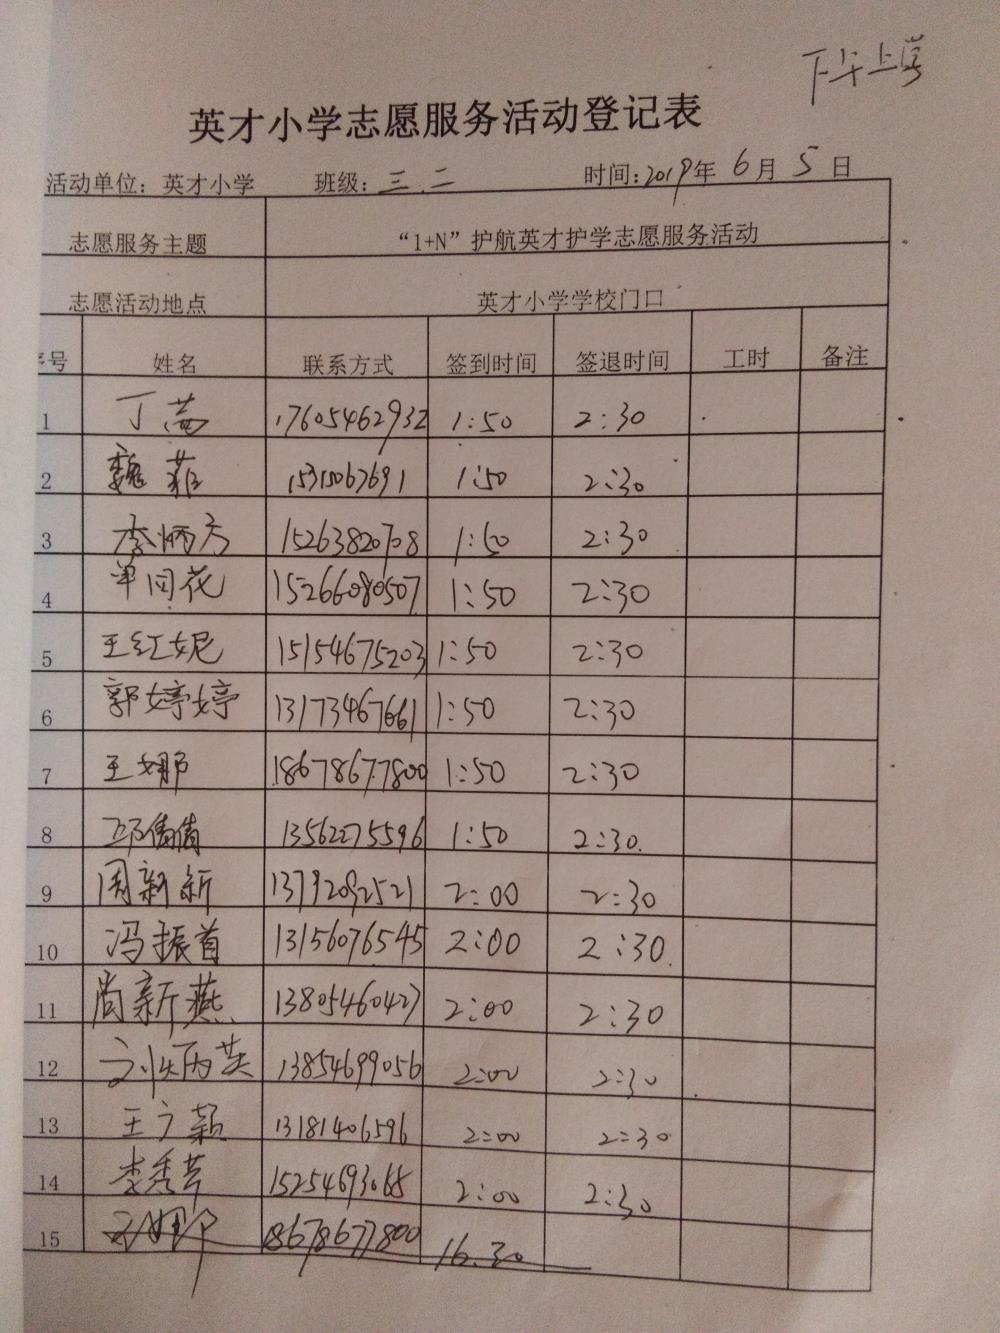 下午上学
英才小学志愿服务活动登记表
活动单位：英才小学 班级：三.二 时间：2019年 6月 5日
志愿服务主题 “1+N”护航英才护学志愿服务活动
志愿活动地点 英才小学学校门口
序号 姓名 联系方式 签到时间 签退时间 工时 备注
1 丁 17605462932 1:50 2:30
2 魏菲 1:50 2:30
3 李炳方 15263820708 1:50 2:30
4 单同花 15266080507 1:50 2:30
5 王红妮 15154675203 1:50 2:30
6 郭婷婷 13173467661 1:50 2:30
7 王娜 18678677800 1:50 2:30
8 邱倩倩 13562275596 1:50 2:30
9 周新新 13792092521 2:00 2:30
10 冯振首 13156076545 2:00 2:30
11 尚新燕 13805460427 2:00 2:30
12 刘炳英 13854699056 2:00 2:30
13 王广颖 13181406596 2:00 2:30
14 李秀芹 15254693065 2:00 2:30
15 王娜 18678677800 16.30